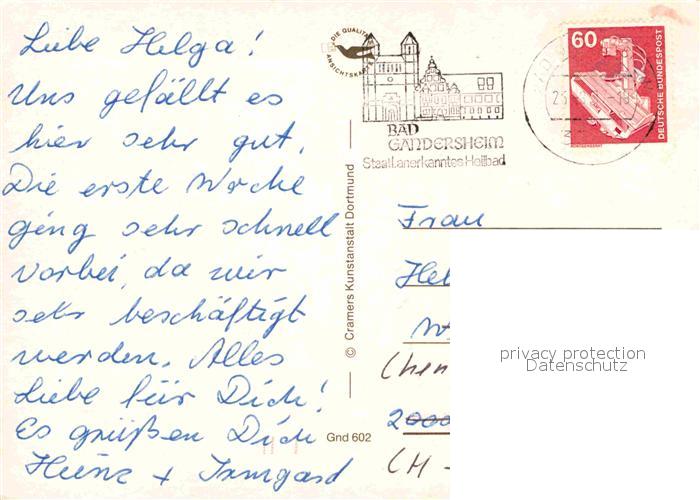 Liebe Helga!
Uns gefällt es
hier sehr gut.
Die erste Woche
ging sehr schnell
vorbei, da wir
sehr beschäftigt
werden. Alles
Liebe für Dich!
Es grüßen Dich
Heinz + Irmgard
DIE QUALITÄTS
ANSICHTSKARTE
BAD
GANDERSHEIM
Staatl. anerkanntes Heilbad
60
DEUTSCHE BUNDESPOST
© Cramers Kunstanstalt Dortmund
Gnd 602
Frau
Hel
(hen
2000
(H -
privacy protection
Datenschutz